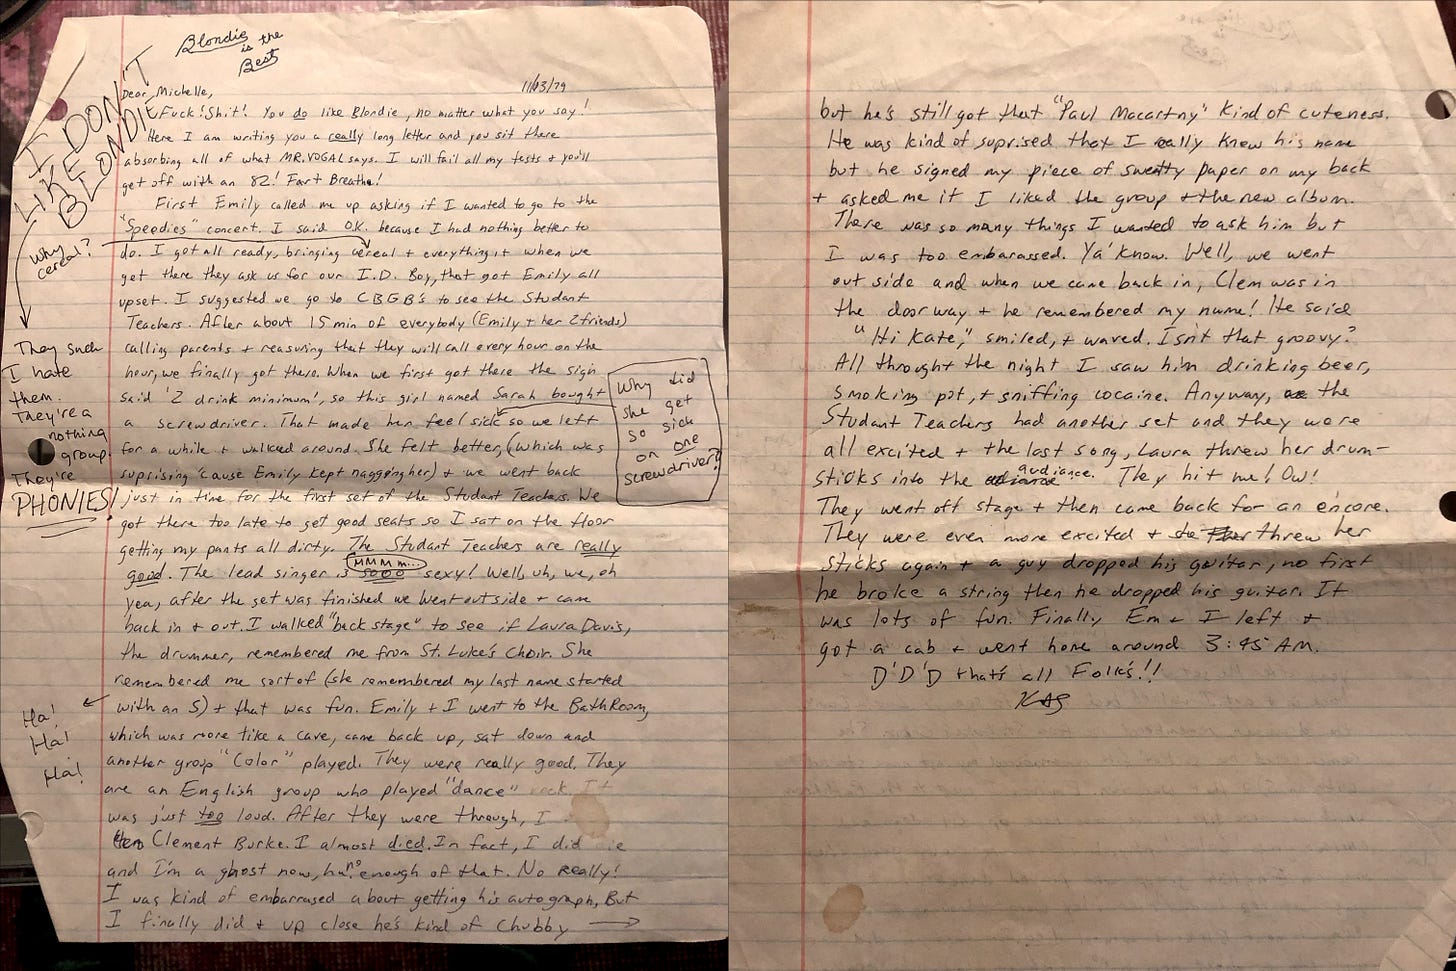 Blondie
is the
Best
11/13/79
I DON'T
LIKE
BLONDIE
Why
cereal?
They suck
I hate
them.
They're a
nothing
group.
They're
PHONIES!
Dear Michelle,
Fuck! Shit! You do like Blondie, no matter what you say!
Here I am writing you a really long letter and you sit there
absorbing all of what MR. VOGAL says. I will fail all my tests + you'll
get off with an 82! Fart Breathe!
First Emily called me up asking if I wanted to go to the
"Speedies" concert. I said OK. because I had nothing better to
do. I got all ready, bringing cereal + everything, + when we
get there they ask us for our I.D. Boy, that got Emily all
upset. I suggested we go to CBGB's to see the Student
Teachers. After about 15 min of everybody (Emily + her 2 friends)
calling parents + reasuring that they will call every hour on the
hour, we finally got there. When we first got there the sign
said '2 drink minimum', so this girl named Sarah bought
a screwdriver. That made her feel sick so we left
for a while + walked around. She felt better, (which was
suprising 'cause Emily kept nagging her) + we went back
just in time for the first set of the Student Teachers. We
got there too late to get good seats so I sat on the floor
getting my pants all dirty. The Student Teachers are really
good. The lead singer is sooo sexy! Well, uh, we, oh
MMMm...
yea, after the set was finished we went outside + came
back in + out. I walked "back stage" to see if Laura Davis,
the drummer, remembered me from St. Luke's Choir. She
remembered me sort of (she remembered my last name started
with an S) + that was fun. Emily + I went to the BathRoom,
which was more like a cave, came back up, sat down and
another group "Color" played. They were really good. They
are an English group who played "dance" rock. It
was just too loud. After they were through, I
Clement Burke. I almost died. In fact, I did die
and I'm a ghost now, ha! no enough of that. No Really!
I was kind of embarrased about getting his autograph, But
I finally did + up close he's kind of Chubby
Why did
she get
so sick
on one
screwdriver?
Ha!
Ha!
Ha!
but he's still got that "Paul Macartny" kind of cuteness.
He was kind of suprised that I really knew his name
but he signed my piece of sweatty paper on my back
+ asked me if I liked the group + the new album.
There was so many things I wanted to ask him but
I was too embarassed. Ya' know. Well, we went
out side and when we came back in, Clem was in
the doorway + he remembered my name! He said
"Hi Kate," smiled, + waved. Isn't that groovy?
All throught the night I saw him drinking beer,
smoking pot, + sniffing cocaine. Anyway, the
Student Teachers had another set and they were
all excited + the last song, Laura threw her drum-
sticks into the audiance. They hit me! Ow!
They went off stage + then came back for an encore.
They were even more excited + she threw her
sticks again + a guy dropped his guitar, no first
he broke a string then he dropped his guitar. It
was lots of fun. Finally, Em + I left +
got a cab + went home around 3:45 AM.
D'D'D that's all Folks!!
KAS